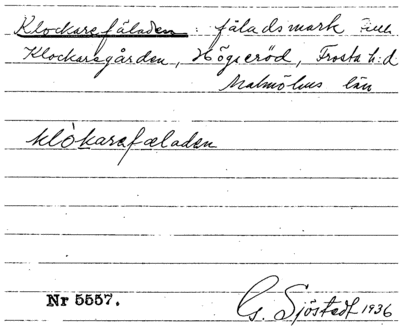 Klockarefäladen: fäladsmark till
Klockaregården, Högseröd, Frosta h:d
Malmöhus län
klòkarefæladen
Nr 5557.
G. Sjöstedt 1936